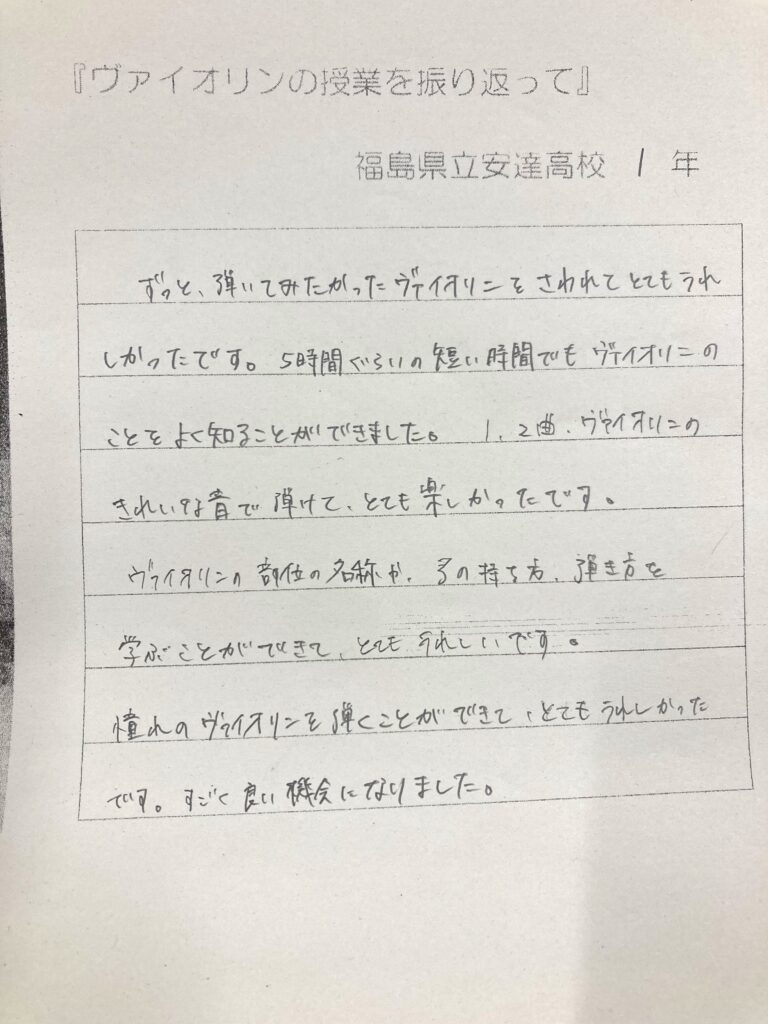 『ヴァイオリンの授業を振り返って』
福島県立安達高校 1 年
ずっと、弾いてみたかったヴァイオリンをさわれてとてもうれ
しかったです。5時間ぐらいの短い時間でもヴァイオリンの
ことをよく知ることができました。 1、2曲、ヴァイオリンの
きれいな音で弾けて、とても楽しかったです。
ヴァイオリンの部位の名称や、その持ち方、弾き方を
学ぶことができて、とてもうれしいです。
憧れのヴァイオリンを弾くことができて、とてもうれしかった
です。すごく良い機会になりました。